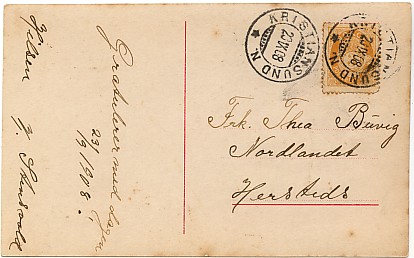 Gratulerer med dagen
23/9 1908.
Hilsen
KRISTIANSUND N
22 IX 08
KRISTIANSUND N
22 IX 08
Frk. Thea Buvig
Nordlandet
Hersteds